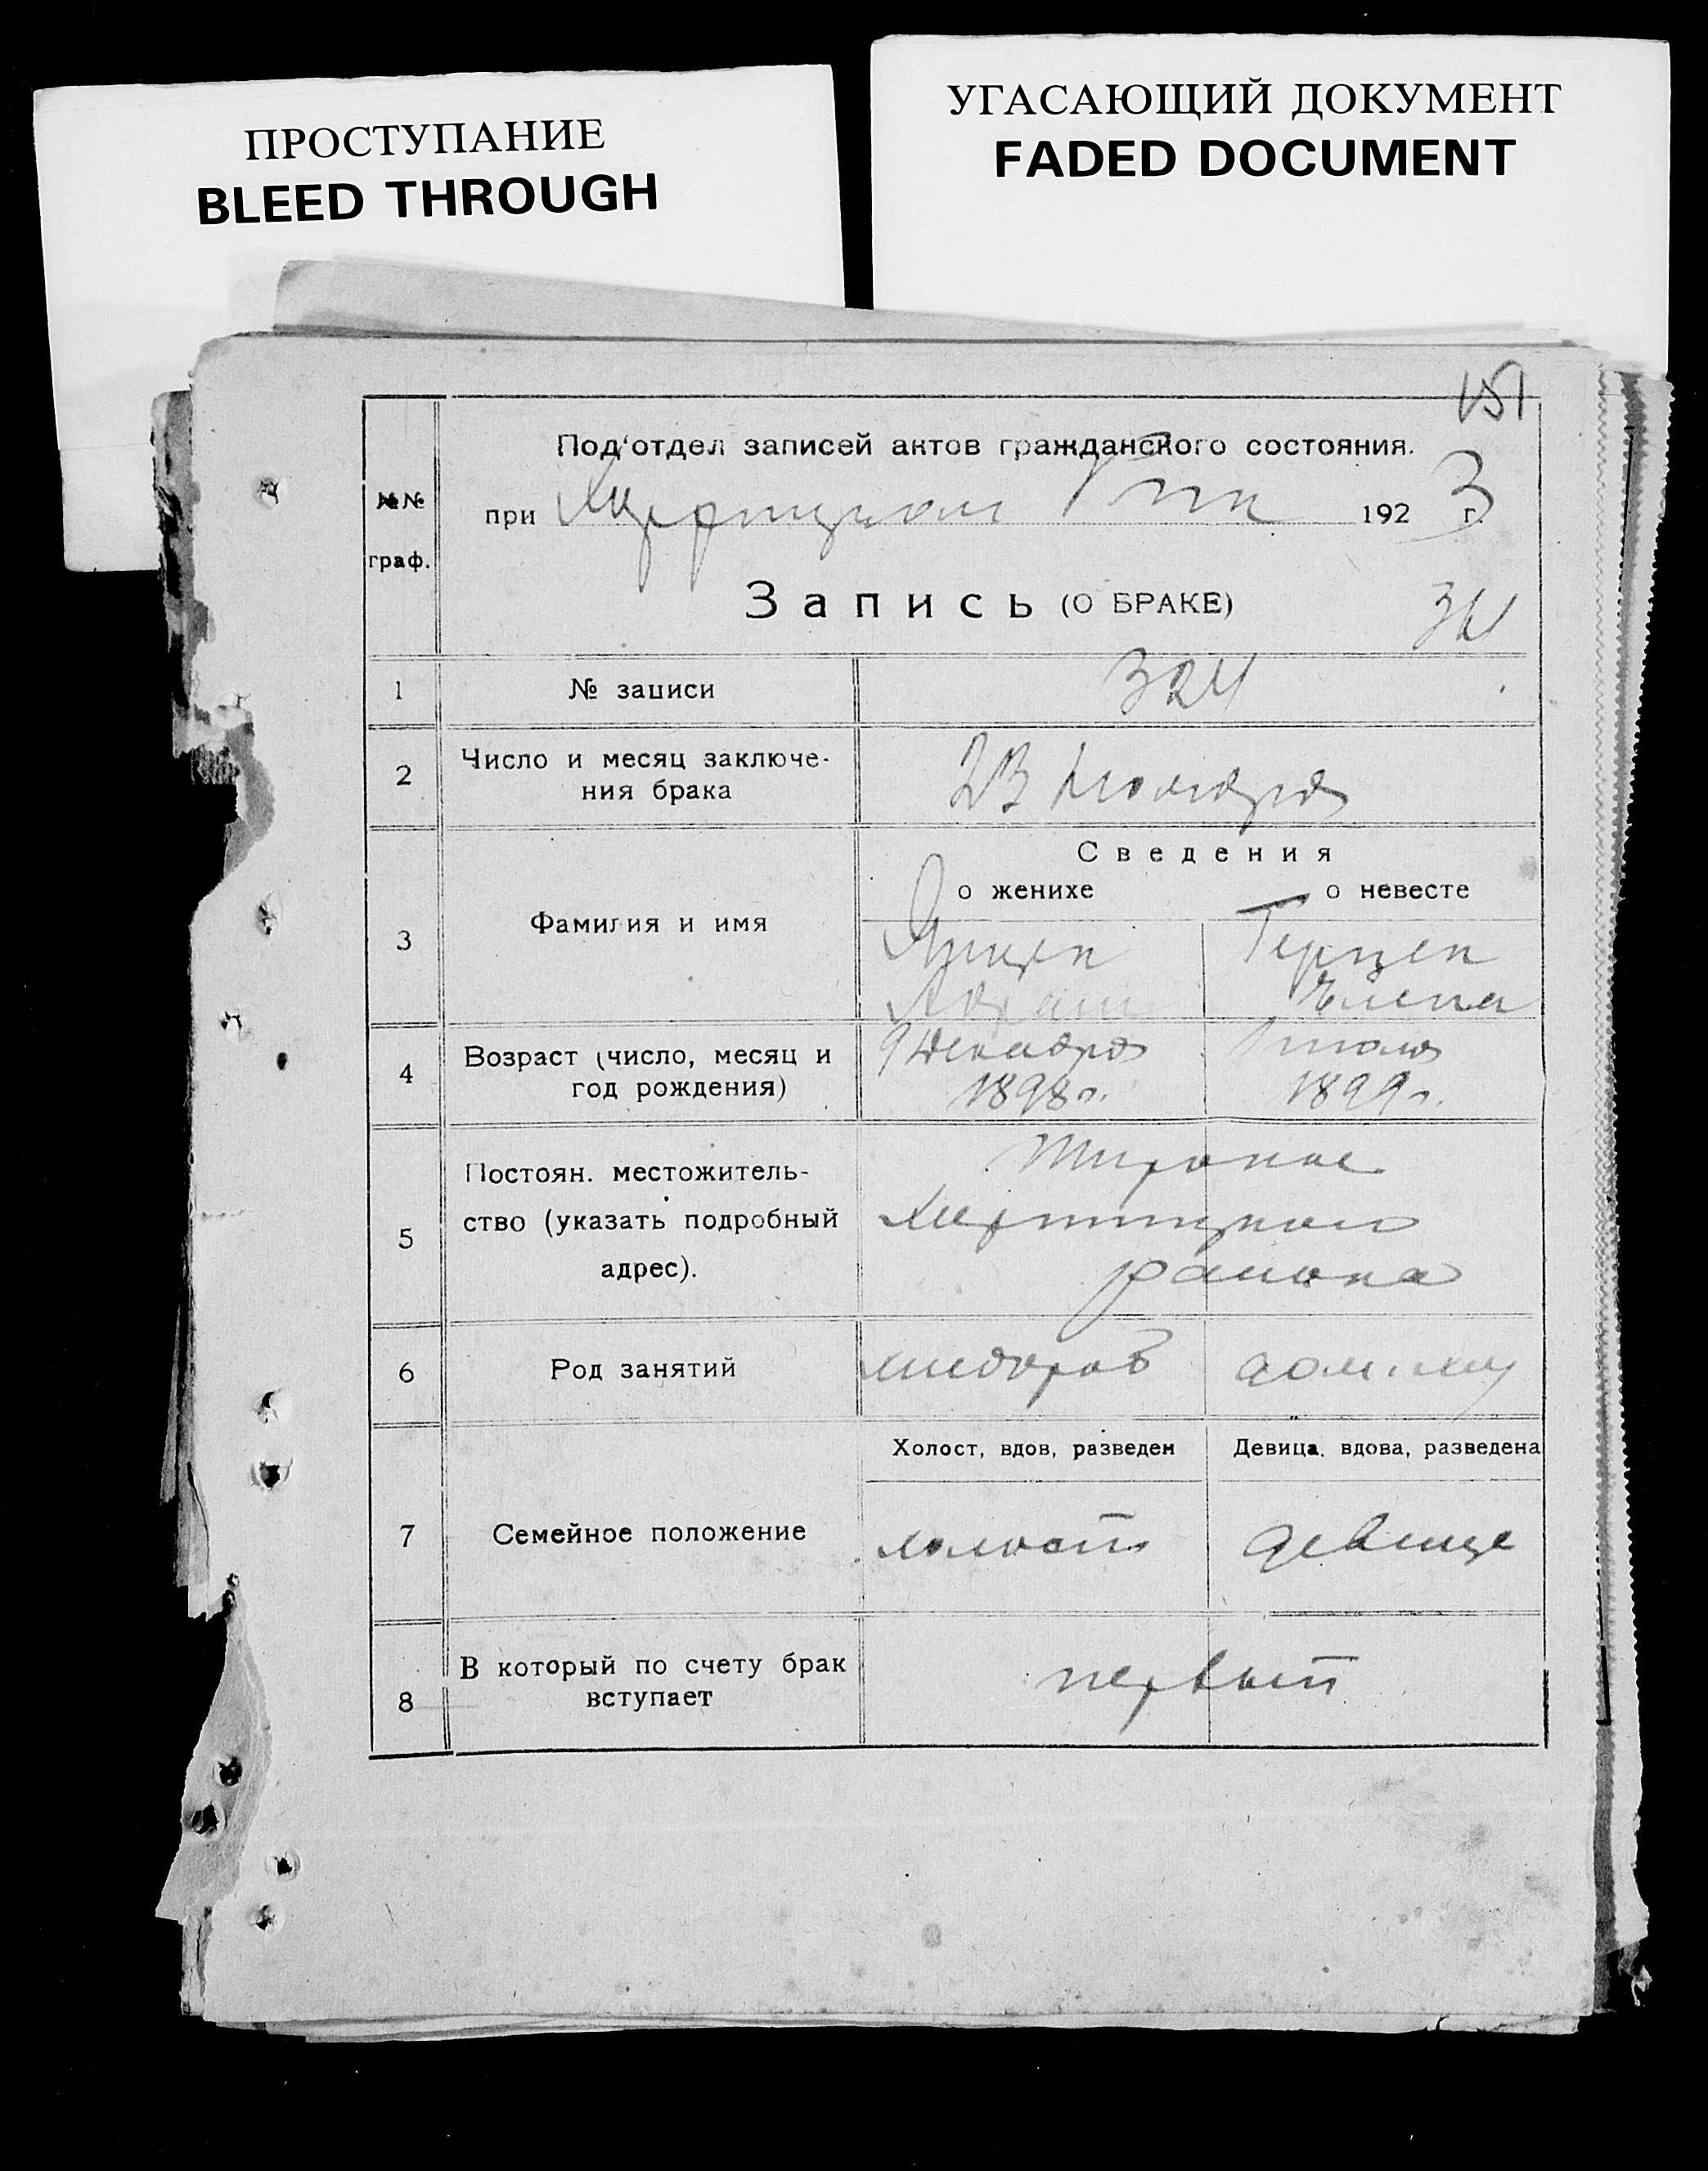 ПРОСТУПАНИЕ
BLEED THROUGH
УГАСАЮЩИЙ ДОКУМЕНТ
FADED DOCUMENT
151
№№
граф.
Под'отдел записей актов гражданского состояния.
при 1923 г.
Запись (О БРАКЕ)
1 № записи 324
2 Число и месяц заключе-
ния брака
Сведения
о женихе о невесте
3 Фамилия и имя
Герцен
Елена
4 Возраст (число, месяц и
год рождения)
9 декабря
1898 г.
1899 г.
5 Постоян. местожитель-
ство (указать подробный
адрес).
Широкое
района
6 Род занятий
хлебороб
7 Семейное положение
Холост, вдов, разведен Девица, вдова, разведена
холост девица
8 В который по счету брак
вступает
первый